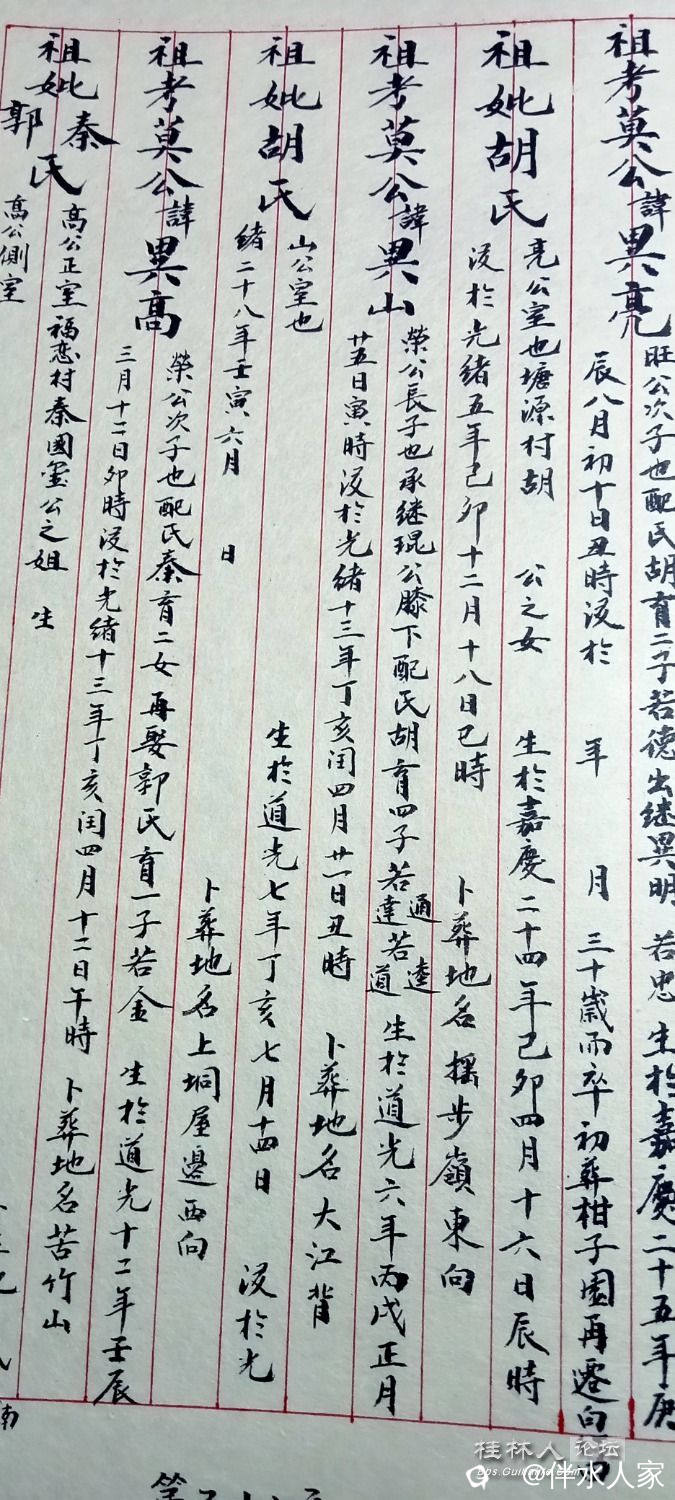 祖考莫公諱異亮
旺公次子也配氏胡育二子若德出继異明 若忠 生於嘉慶二十五年庚
辰八月初十日丑時没於 年 月 三十歲而卒初葬柑子園再遷向
祖妣胡氏
亮公室也塘源村胡 公之女 生於嘉慶二十四年己卯四月十六日辰時
没於光绪五年己卯十二月十八日巳時 卜葬地名摇步嶺東向
祖考莫公諱異山
榮公長子也承继琨公膝下配氏胡育四子若通達若逵道 生於道光六年丙戌正月
廿五日寅時没於光绪十三年丁亥闰四月廿一日丑時 卜葬地名大江背
祖妣胡氏
山公室也 生於道光七年丁亥七月十四日 没於光
绪二十八年壬寅六月 日 卜葬地名上垌屋邊西向
祖考莫公諱異高
榮公次子也配氏秦育二女再娶郭氏育一子若金 生於道光十二年壬辰
三月十二日卯時没於光绪十三年丁亥闰四月十二日午時 卜葬地名苦竹山
祖妣秦郭氏
高公正室福恋村秦國璽公之姐 生
高公側室
南
桂林人论坛
bbs.Guilinlife.com
@伴水人家